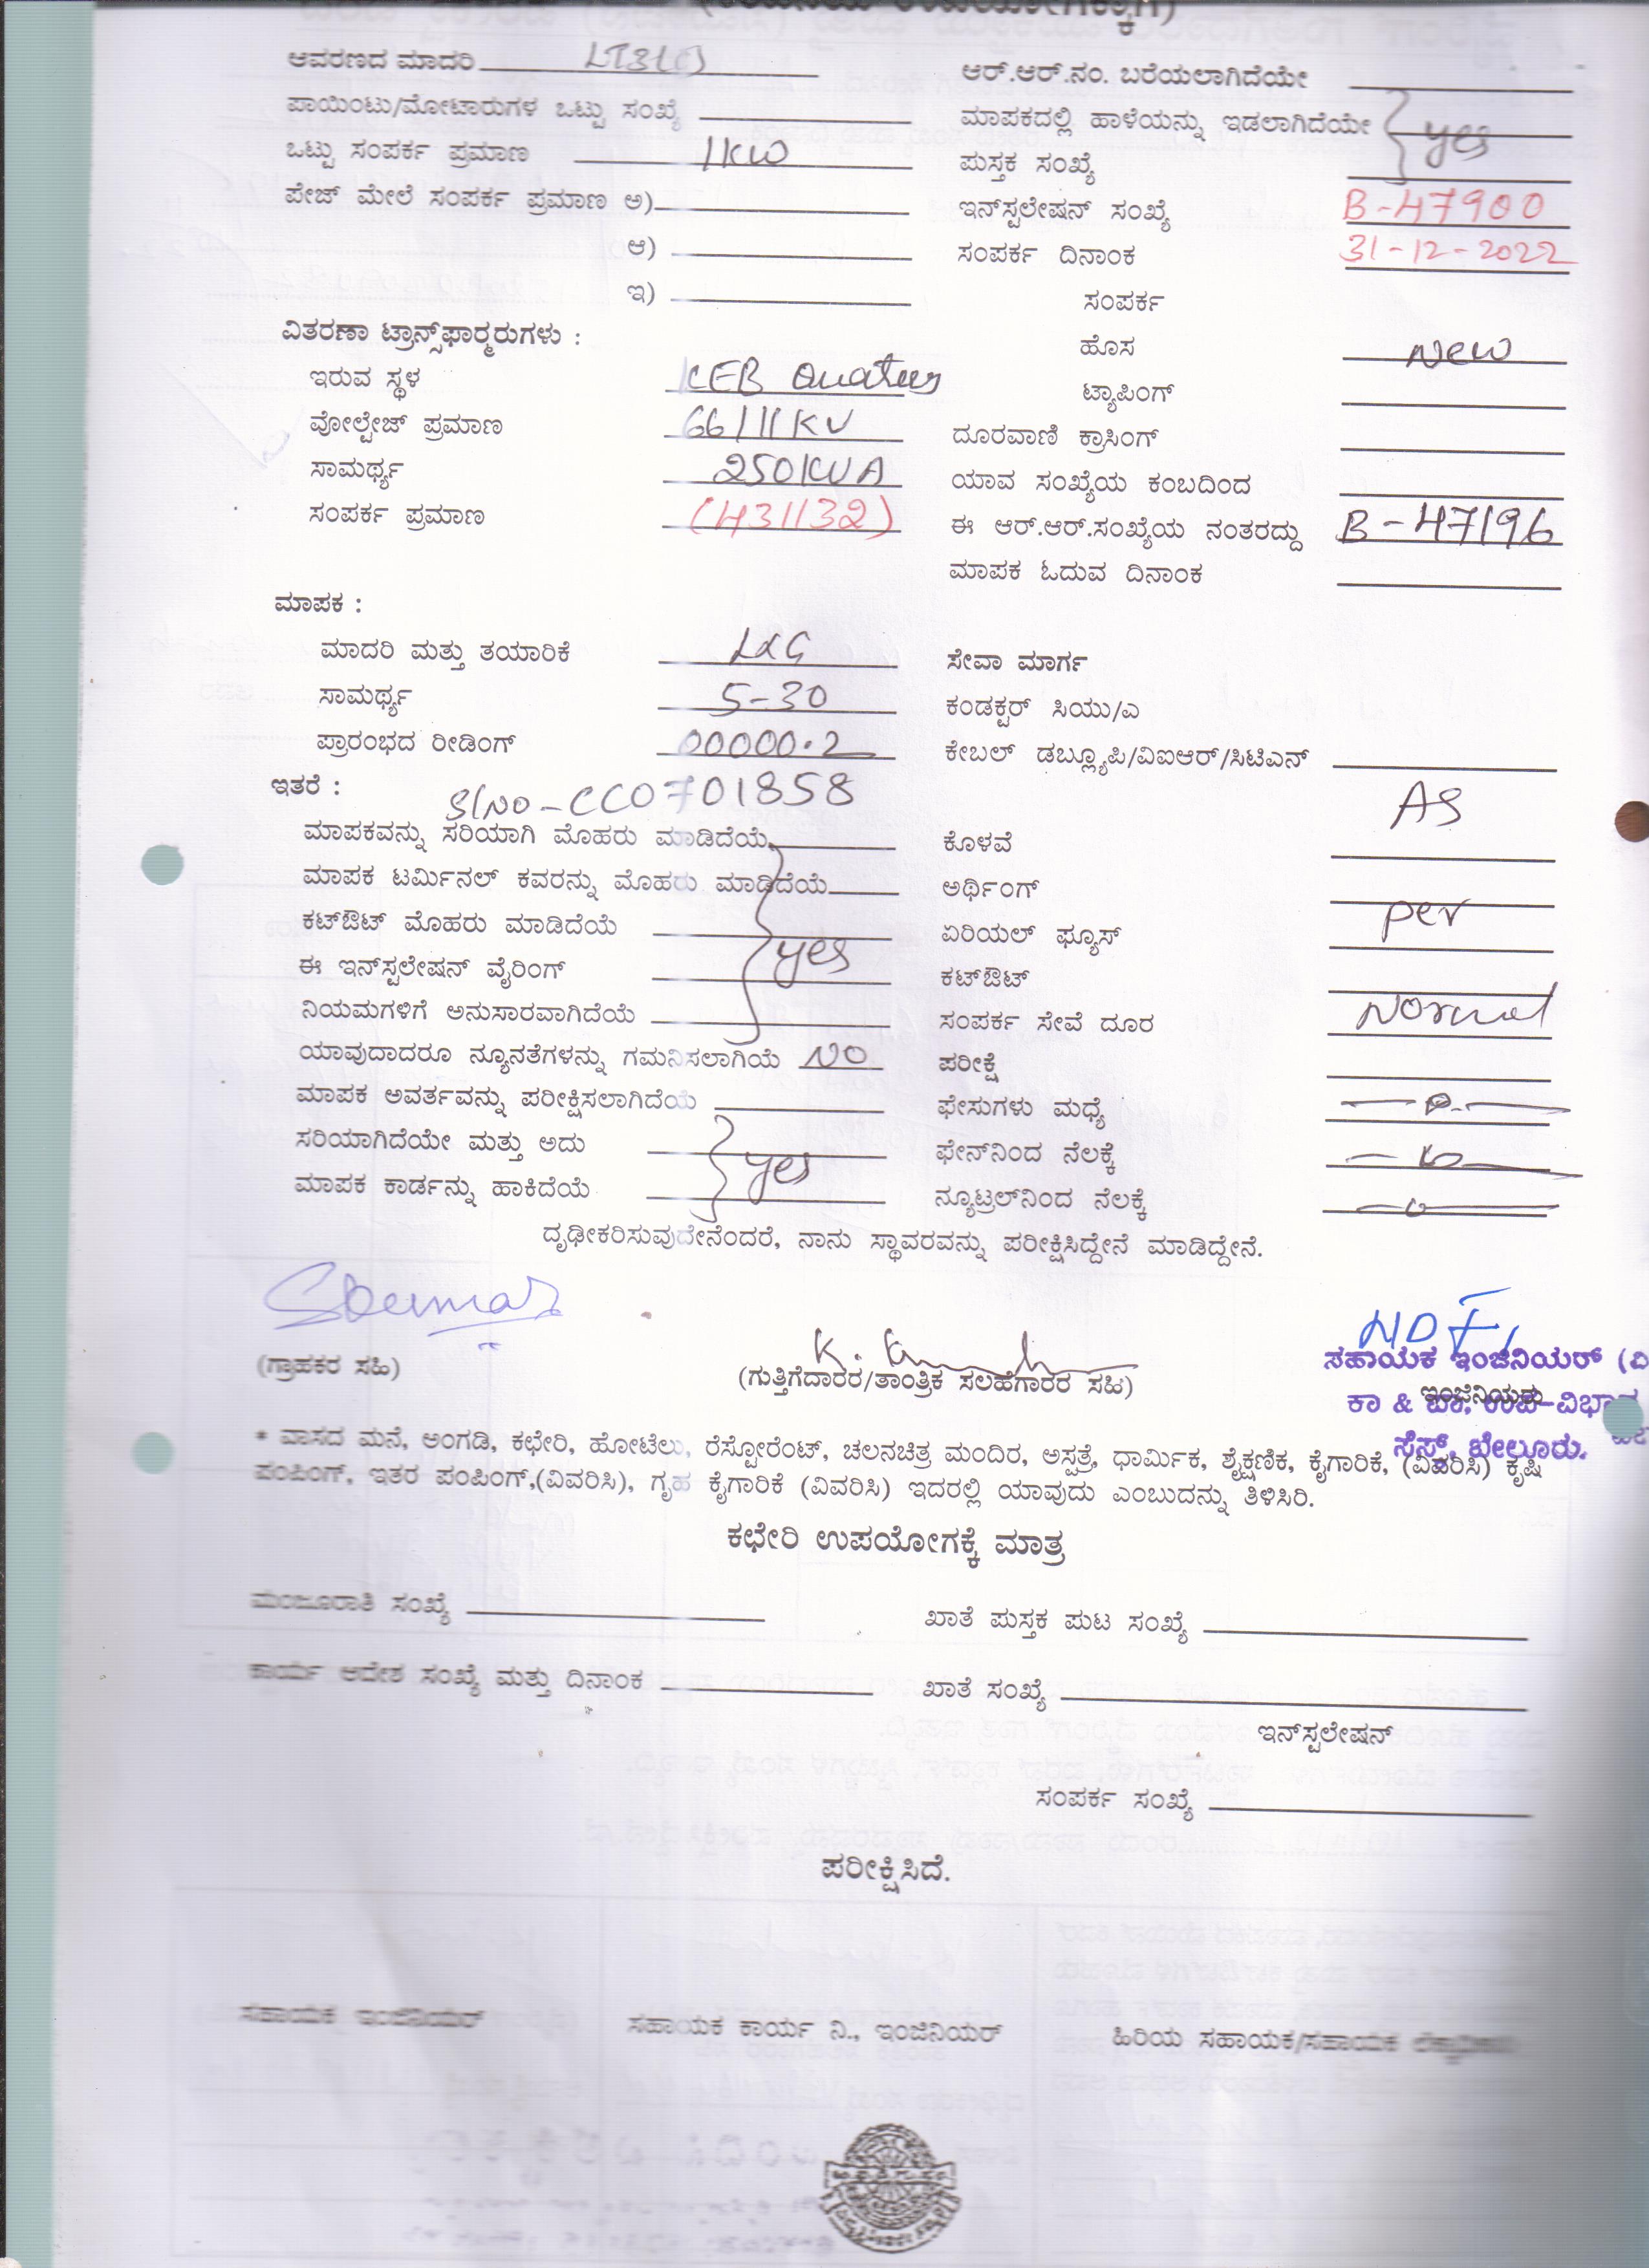 ಆವರಣದ ಮಾದರಿ
ಆರ್.ಆರ್.ನಂ. ಬರೆಯಲಾಗಿದೆಯೇ
ಪಾಯಿಂಟು/ಮೋಟಾರುಗಳ ಒಟ್ಟು ಸಂಖ್ಯೆ
ಮಾಪಕದಲ್ಲಿ ಹಾಳೆಯನ್ನು ಇಡಲಾಗಿದೆಯೇ yes
ಒಟ್ಟು ಸಂಪರ್ಕ ಪ್ರಮಾಣ 1KW
ಪುಸ್ತಕ ಸಂಖ್ಯೆ
ಪೇಜ್ ಮೇಲೆ ಸಂಪರ್ಕ ಪ್ರಮಾಣ ಅ)
ಇನ್‌ಸ್ಟಲೇಷನ್ ಸಂಖ್ಯೆ B-47900
ಆ)
ಸಂಪರ್ಕ ದಿನಾಂಕ 31-12-2022
ಇ)
ಸಂಪರ್ಕ
ವಿತರಣಾ ಟ್ರಾನ್ಸ್‌ಫಾರ್‍ಮರುಗಳು :
ಹೊಸ New
ಇರುವ ಸ್ಥಳ KEB Quaters
ಟ್ಯಾಪಿಂಗ್
ವೋಲ್ಟೇಜ್ ಪ್ರಮಾಣ 66/11KV
ದೂರವಾಣಿ ಕ್ರಾಸಿಂಗ್
ಸಾಮರ್ಥ್ಯ 250KVA
ಯಾವ ಸಂಖ್ಯೆಯ ಕಂಬದಿಂದ
ಸಂಪರ್ಕ ಪ್ರಮಾಣ (431132)
ಈ ಆರ್.ಆರ್.ಸಂಖ್ಯೆಯ ನಂತರದ್ದು B-47196
ಮಾಪಕ ಓದುವ ದಿನಾಂಕ
ಮಾಪಕ :
ಮಾದರಿ ಮತ್ತು ತಯಾರಿಕೆ L&G
ಸೇವಾ ಮಾರ್ಗ
ಸಾಮರ್ಥ್ಯ 5-30
ಕಂಡಕ್ಟರ್ ಸಿಯು/ಎ
ಪ್ರಾರಂಭದ ರೀಡಿಂಗ್ 00000.2
ಕೇಬಲ್ ಡಬ್ಲ್ಯೂಪಿ/ವಿಐಆರ್/ಸಿಟಿಎನ್
ಇತರೆ : Sl NO-CC0701858
AS
ಮಾಪಕವನ್ನು ಸರಿಯಾಗಿ ಮೊಹರು ಮಾಡಿದೆಯೆ
ಕೊಳವೆ
ಮಾಪಕ ಟರ್ಮಿನಲ್ ಕವರನ್ನು ಮೊಹರು ಮಾಡಿದೆಯೆ
ಅರ್ಥಿಂಗ್
per
ಕಟ್‌ಔಟ್ ಮೊಹರು ಮಾಡಿದೆಯೆ
ಏರಿಯಲ್ ಫ್ಯೂಸ್
ಈ ಇನ್‌ಸ್ಟಲೇಷನ್ ವೈರಿಂಗ್ yes
ಕಟ್‌ಔಟ್
ನಿಯಮಗಳಿಗೆ ಅನುಸಾರವಾಗಿದೆಯೇ
ಸಂಪರ್ಕ ಸೇವೆ ದೂರ Normal
ಯಾವುದಾದರೂ ನ್ಯೂನತೆಗಳನ್ನು ಗಮನಿಸಲಾಗಿಯೆ NO
ಪರೀಕ್ಷೆ
ಮಾಪಕ ಅವರ್ತವನ್ನು ಪರೀಕ್ಷಿಸಲಾಗಿದೆಯೆ
ಫೇಸುಗಳು ಮಧ್ಯೆ
ಸರಿಯಾಗಿದೆಯೇ ಮತ್ತು ಅದು yes
ಫೇನ್‌ನಿಂದ ನೆಲಕ್ಕೆ
ಮಾಪಕ ಕಾರ್ಡನ್ನು ಹಾಕಿದೆಯೆ
ನ್ಯೂಟ್ರಲ್‌ನಿಂದ ನೆಲಕ್ಕೆ
ದೃಢೀಕರಿಸುವುದೇನೆಂದರೆ, ನಾನು ಸ್ಥಾವರವನ್ನು ಪರೀಕ್ಷಿಸಿದ್ದೇನೆ ಮಾಡಿದ್ದೇನೆ.
(ಗ್ರಾಹಕರ ಸಹಿ)
(ಗುತ್ತಿಗೆದಾರರ/ತಾಂತ್ರಿಕ ಸಲಹೆಗಾರರ ಸಹಿ)
ಸಹಾಯಕ ಇಂಜಿನಿಯರ್ (ವಿ
ಇಂಜಿನಿಯರು
ಕಾ & ಪಾ, ಉಪ-ವಿಭಾಗ
ಸೆಸ್ಕ್, ಬೇಲೂರು.
* ವಾಸದ ಮನೆ, ಅಂಗಡಿ, ಕಛೇರಿ, ಹೋಟೆಲು, ರೆಸ್ಟೋರೆಂಟ್, ಚಲನಚಿತ್ರ ಮಂದಿರ, ಅಸ್ಪತ್ರೆ, ಧಾರ್ಮಿಕ, ಶೈಕ್ಷಣಿಕ, ಕೈಗಾರಿಕೆ, (ವಿವರಿಸಿ) ಕೃಷಿ
ಪಂಪಿಂಗ್, ಇತರ ಪಂಪಿಂಗ್,(ವಿವರಿಸಿ), ಗೃಹ ಕೈಗಾರಿಕೆ (ವಿವರಿಸಿ) ಇದರಲ್ಲಿ ಯಾವುದು ಎಂಬುದನ್ನು ತಿಳಿಸಿರಿ.
ಕಛೇರಿ ಉಪಯೋಗಕ್ಕೆ ಮಾತ್ರ
ಮಂಜೂರಾತಿ ಸಂಖ್ಯೆ
ಖಾತೆ ಪುಸ್ತಕ ಪುಟ ಸಂಖ್ಯೆ
ಕಾರ್ಯ ಆದೇಶ ಸಂಖ್ಯೆ ಮತ್ತು ದಿನಾಂಕ
ಖಾತೆ ಸಂಖ್ಯೆ
ಇನ್‌ಸ್ಟಲೇಷನ್
ಸಂಪರ್ಕ ಸಂಖ್ಯೆ
ಪರೀಕ್ಷಿಸಿದೆ.
ಸಹಾಯಕ ಇಂಜಿನಿಯರ್
ಸಹಾಯಕ ಕಾರ್ಯ ನಿ., ಇಂಜಿನಿಯರ್
ಹಿರಿಯ ಸಹಾಯಕ/ಸಹಾಯಕ